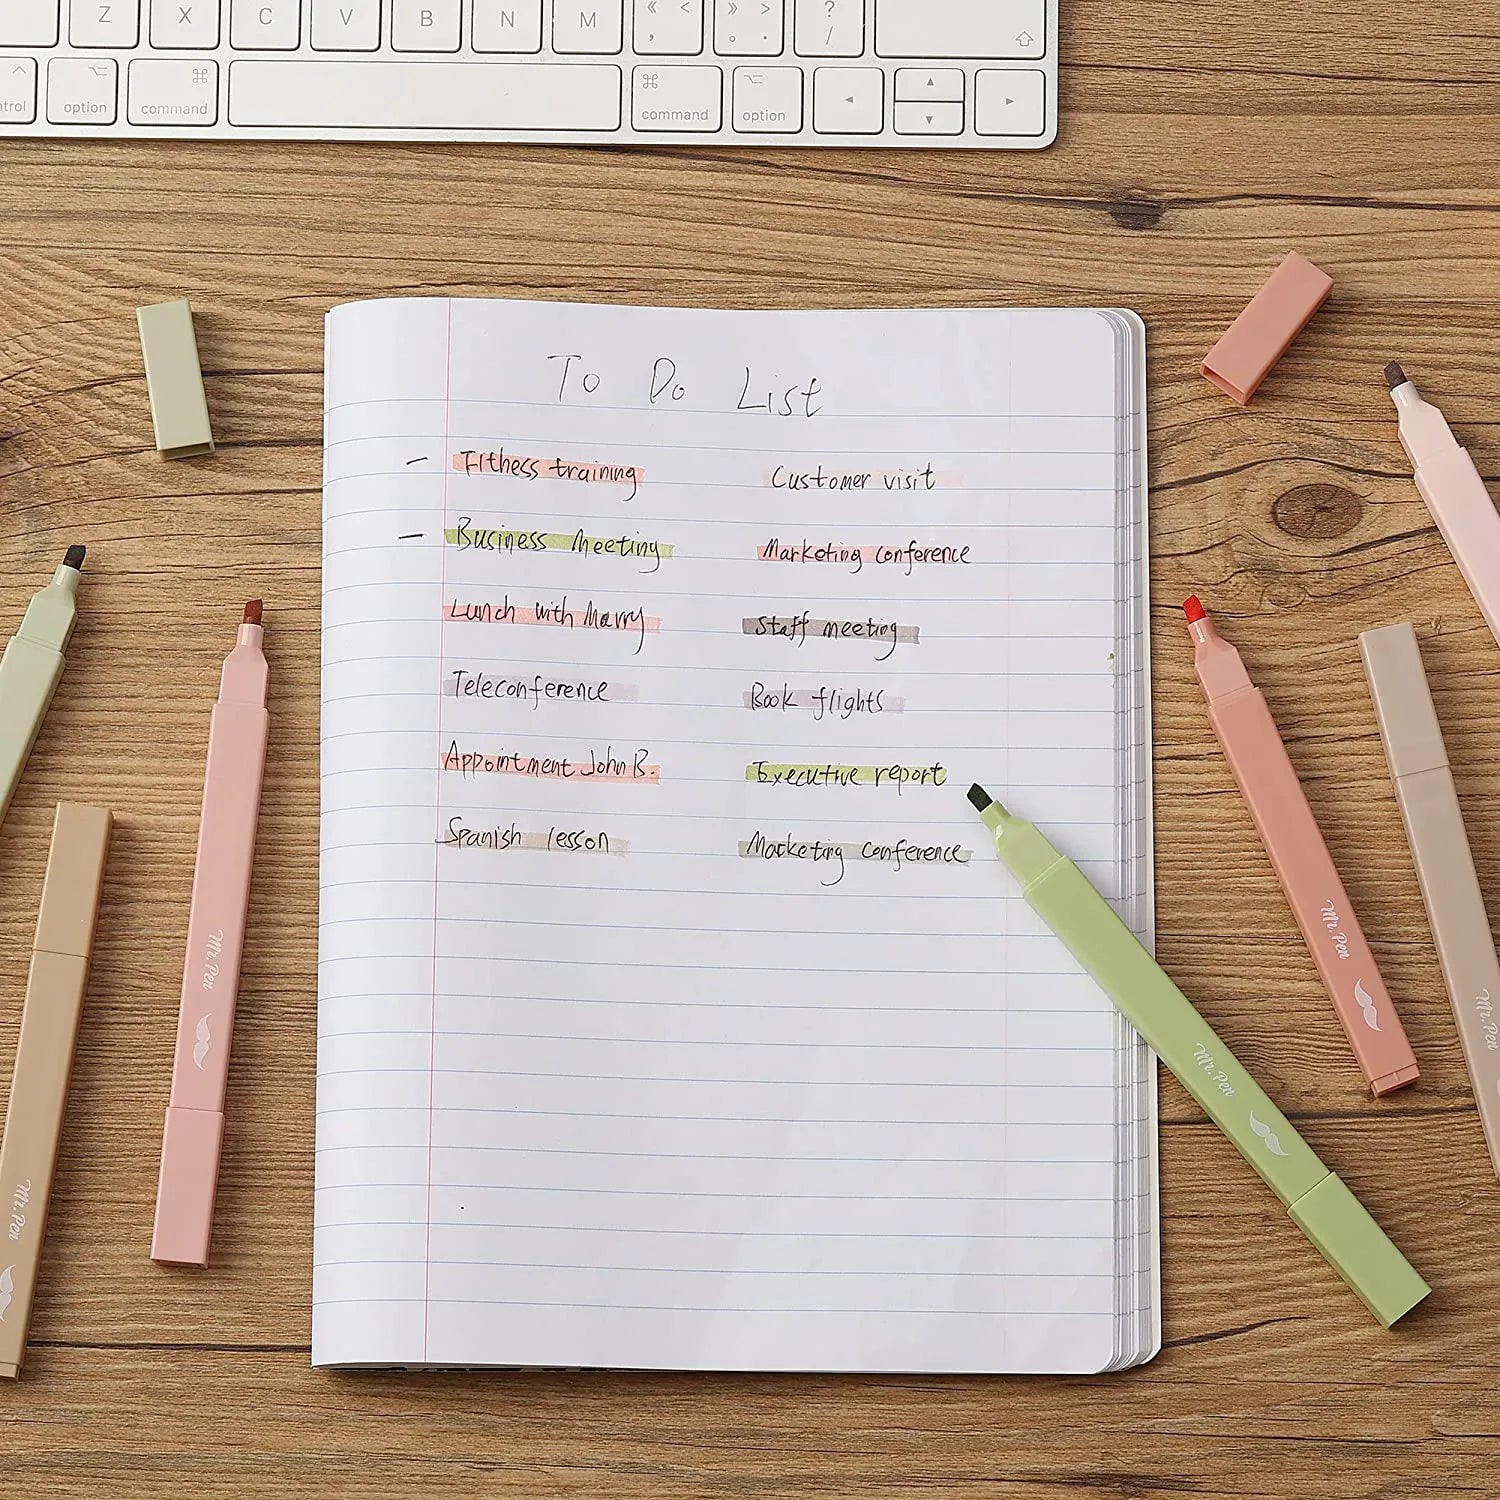 Z X C V B N M « < , » > . ? /
control option command command option
To Do List
- Fithess training
- Business Meeting
Lunch with Marry
Teleconference
Appointment John B.
Spanish lesson
Customer visit
Marketing conference
Staff meeting
Book flights
Executive report
Marketing conference
Mr. Pen
Mr. Pen
Mr. Pen
Mr. Pen
Mr. Pen